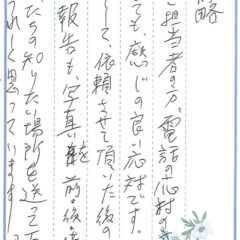 略
ご担当者の方、電話の応対の
ても、感じの良い応対です。
して、依頼させて頂いた後の
報告も、写真を前、後、
たちの知りたい場所を送って
うれしく思っています